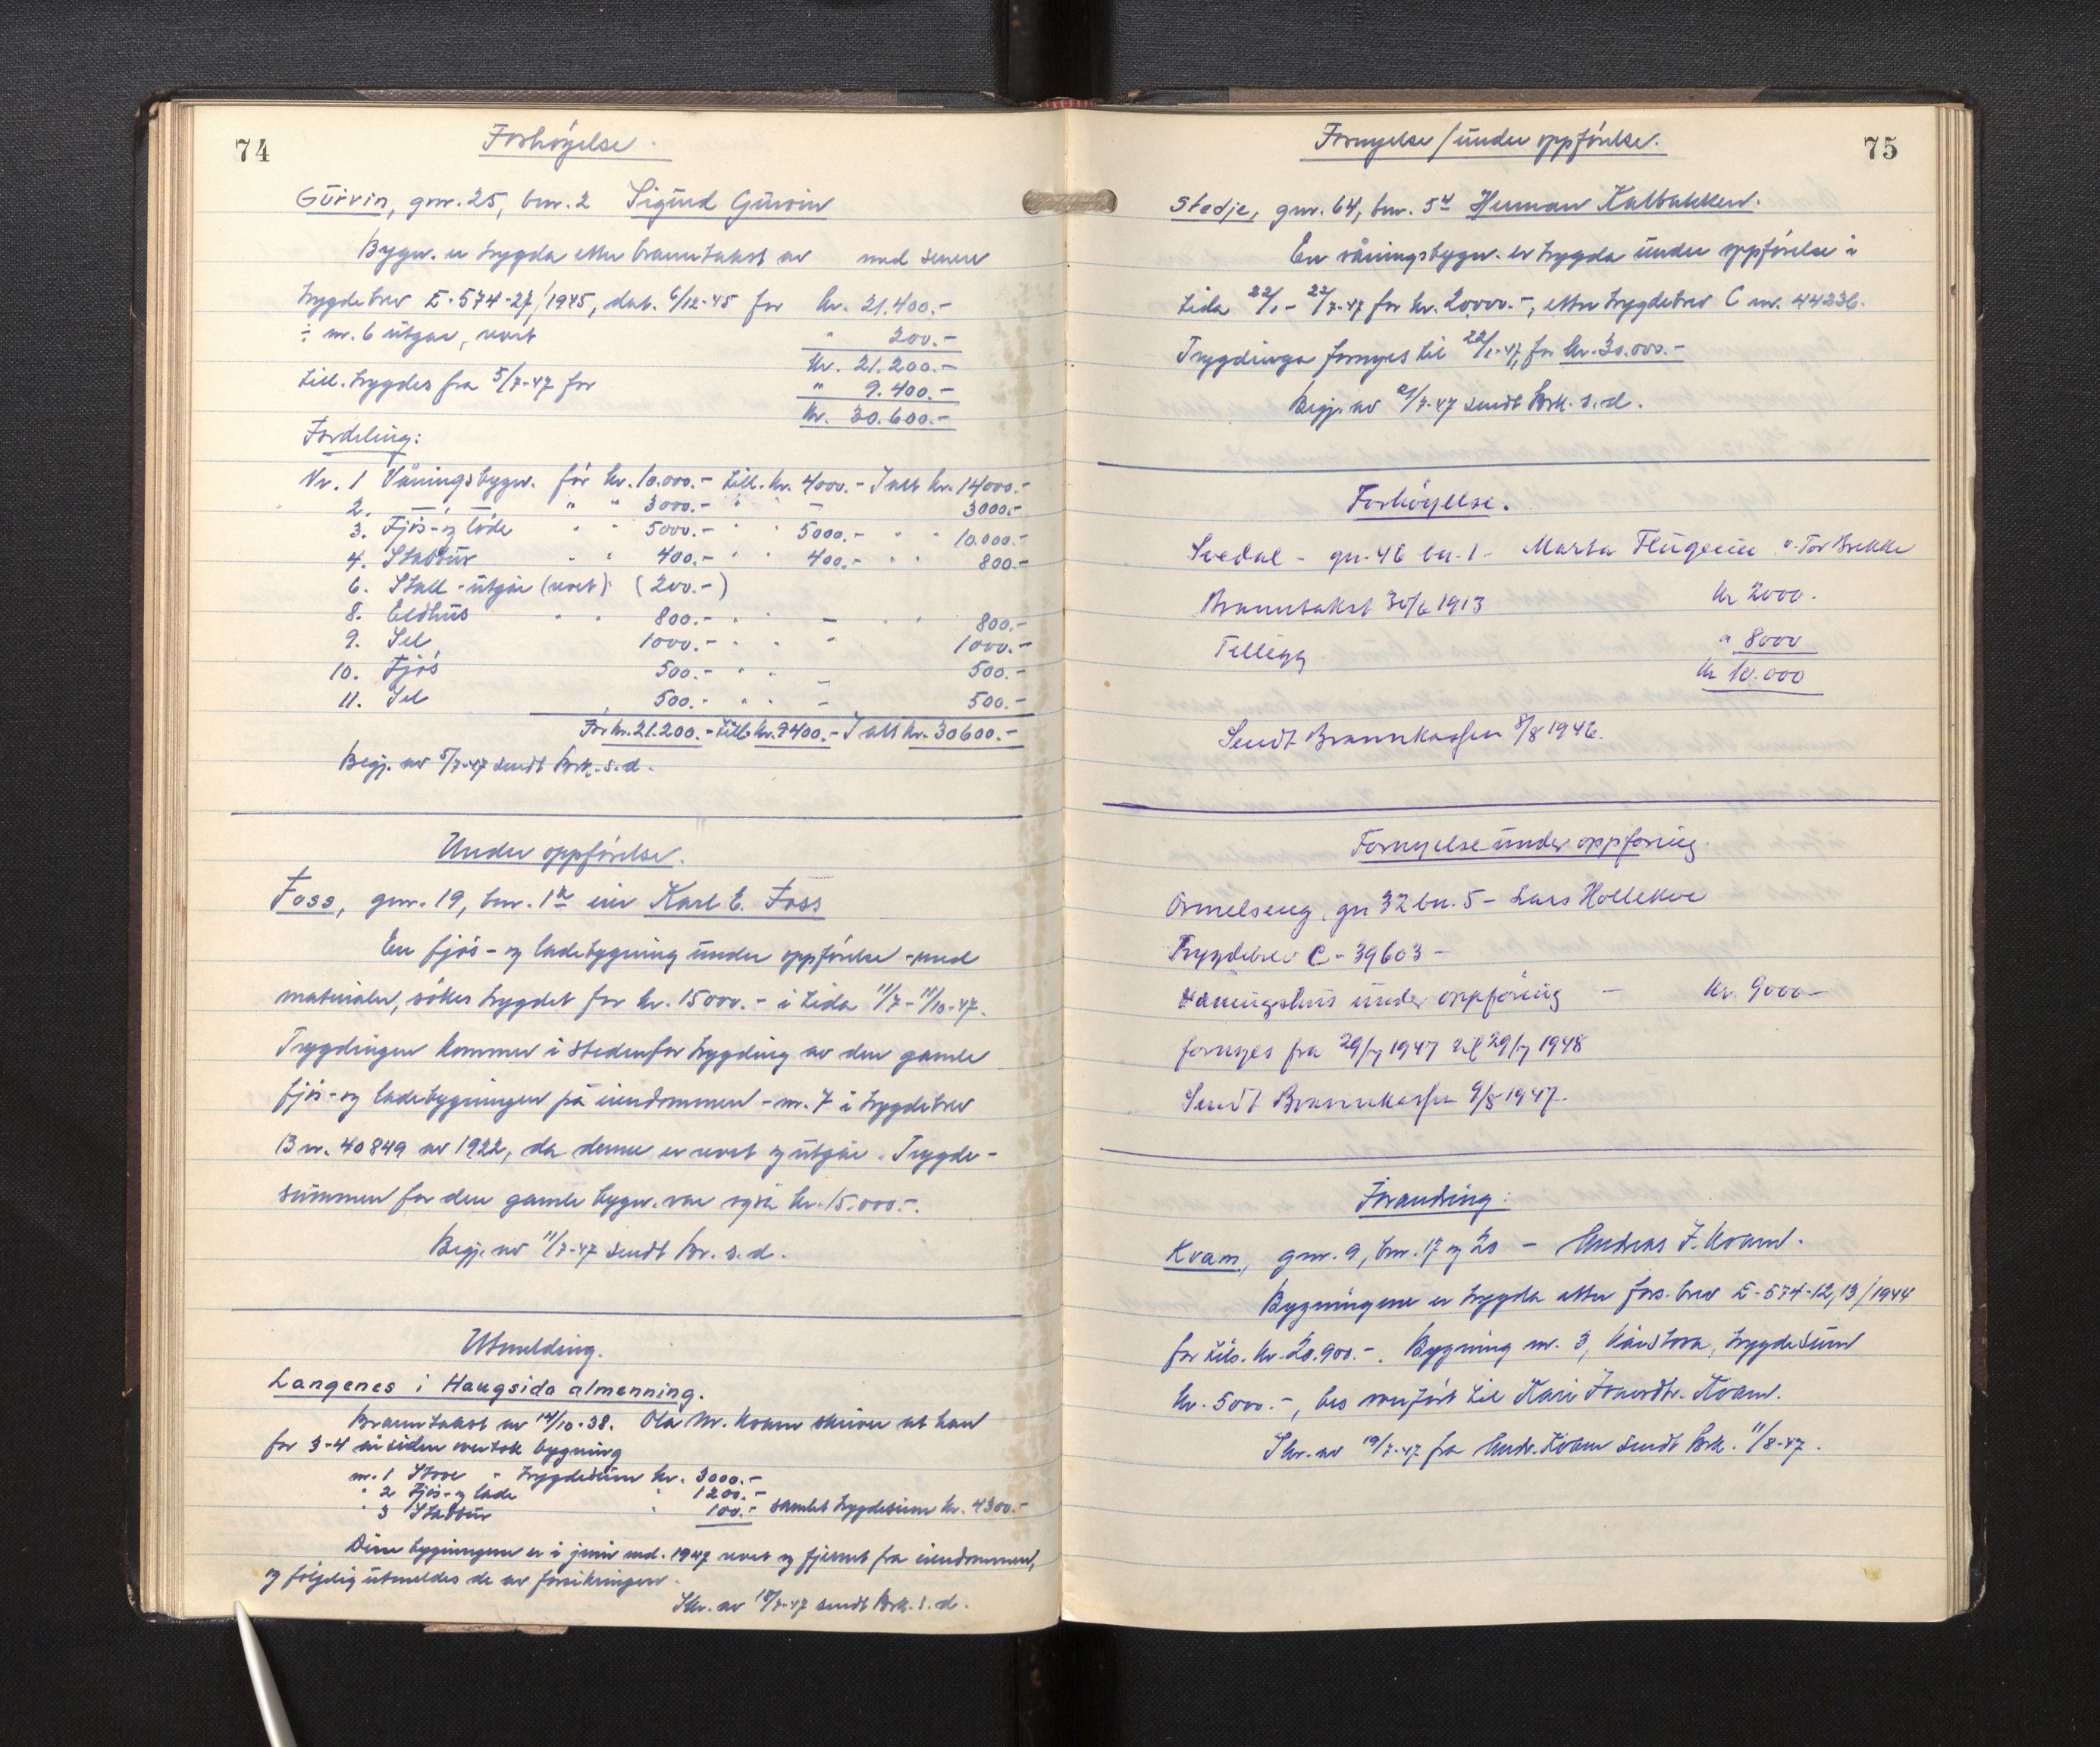 74
Forhöyelse.
Gurvin, gnr. 25, bnr. 2 Sigurd Gurvin
Bygn. er trygda etter branntakst av med senere
trygdebrev E-574-27/1945, dat. 6/12-45 for kr. 21.400.-
÷ nr. 6 utgår, revet " 200.-
kr. 21.200.-
till. trygdes fra 5/7-47 for " 9.400.-
kr. 30.600.-
Fordeling:
Nr. 1 Våningsbygn. för kr. 10.000.- till. kr. 4000.- I alt kr. 14000.-
2. — " " 3000.- " — 3000.-
3. Fjös- og löde " " 5000.- " " 5000.- " " 10.000.-
4. Stabbur " " 400.- " " 400.- " " 800.-
6. Stall - utgår (revet) (200.-)
8. Eldhus " " 800.- " — " " 800.-
9. Sel 1000.- " " " 1000.-
10. Fjös 500.- " " — 500.-
11. Sel 500.- " " — 500.-
För kr. 21.200.- till. kr. 9400.- I alt kr. 30600.-
Begj. av 5/7-47 sendt Brk. s.d.
Under oppförelse.
Foss, gnr. 19, bnr. 1 eier Karl E. Foss
En fjös- og ladebygning under oppförelse - med
materialer, sökes trygdet for kr. 15000.- i tida 11/7-11/10-47.
Trygdingen kommer i stedenfor trygding av den gamle
fjös- og ladebygningen på eiendommen - nr. 7 i trygdebrev
B nr. 40849 av 1922, da denne er revet og utgår. Trygde-
summen for den gamle bygn. var også kr. 15.000.-.
Begj. av 11/7-47 sendt Br. s.d.
Utmelding.
Langenes i Haugsida almenning.
Branntakst av 14/10-38. Ola Nr. Kvam skriver at han
for 3-4 år siden overtok bygning
nr. 1 Stove - trygdesum kr. 3000.-
" 2 Fjös- og lade " 1200.-
" 3 Stabbur " 100.- samlet trygdesum kr. 4300.-
Disse bygningene er i juni md. 1947 revet og fjernet fra eiendommen,
og fölgelig utmeldes de av forsikringen.
Skr. av 18/7-47 sendt Brk. s.d.
75
Fornyelse/under oppförelse.
Stedje, gnr. 64, bnr. 54 Herman Kalbakken.
En våningsbygn. er trygda under oppförelse i
tida 22/1-22/7-47 for kr. 20000.-, etter trygdebrev C nr. 44236.
Trygdinga fornyes til 22/1-47 for kr. 30.000.-
Begj. av 21/7-47 sendt Brk. s.d.
Forhöyelse.
Svedal - gn. 46 bn. 1 - Marta Flugeim o. Tor Brekke
Branntakst 30/6 1913 kr 2000.
Tillegg " 8000
kr 10.000
Sendt Brannkassen 8/8 1946.
Fornyelse under oppföring.
Ormelseng, gn 32 bn. 5 - Lars Hollekve
Trygdebrev C - 39603 -
Våningshus under oppföring - kr. 9000-
fornyes fra 29/7 1947 til 29/7 1948
Sendt Brannkassen 9/8 1947.
Forandring:
Kvam, gnr. 9, bnr. 17 og 20 - Andreas J. Kvam.
Bygningene er trygda etter fors. brev E-574-12,13/1944
for tils. kr. 20.900.-. Bygning nr. 3, Kårstova, trygdesum
kr. 5000.-, bes overfört til Kari Ivarsdtr. Kvam.
Skr. av 19/7-47 fra Andr. Kvam sendt Brk. 11/8-47.